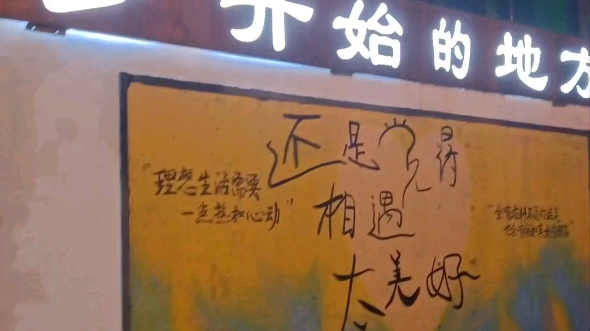 开始的地方
还是觉得
相遇
太美好
"理想生活需要
一点热和心动"